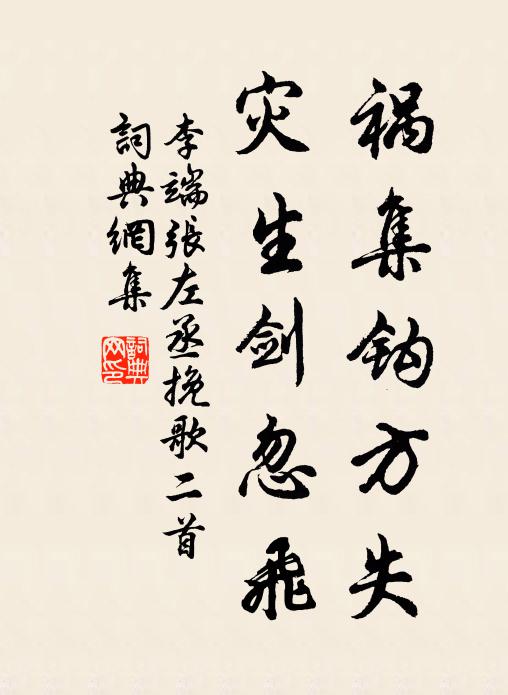 祸集钩方失
灾生剑忽飛
李端張左丞挽歌二首
詞典網集
詞典网印